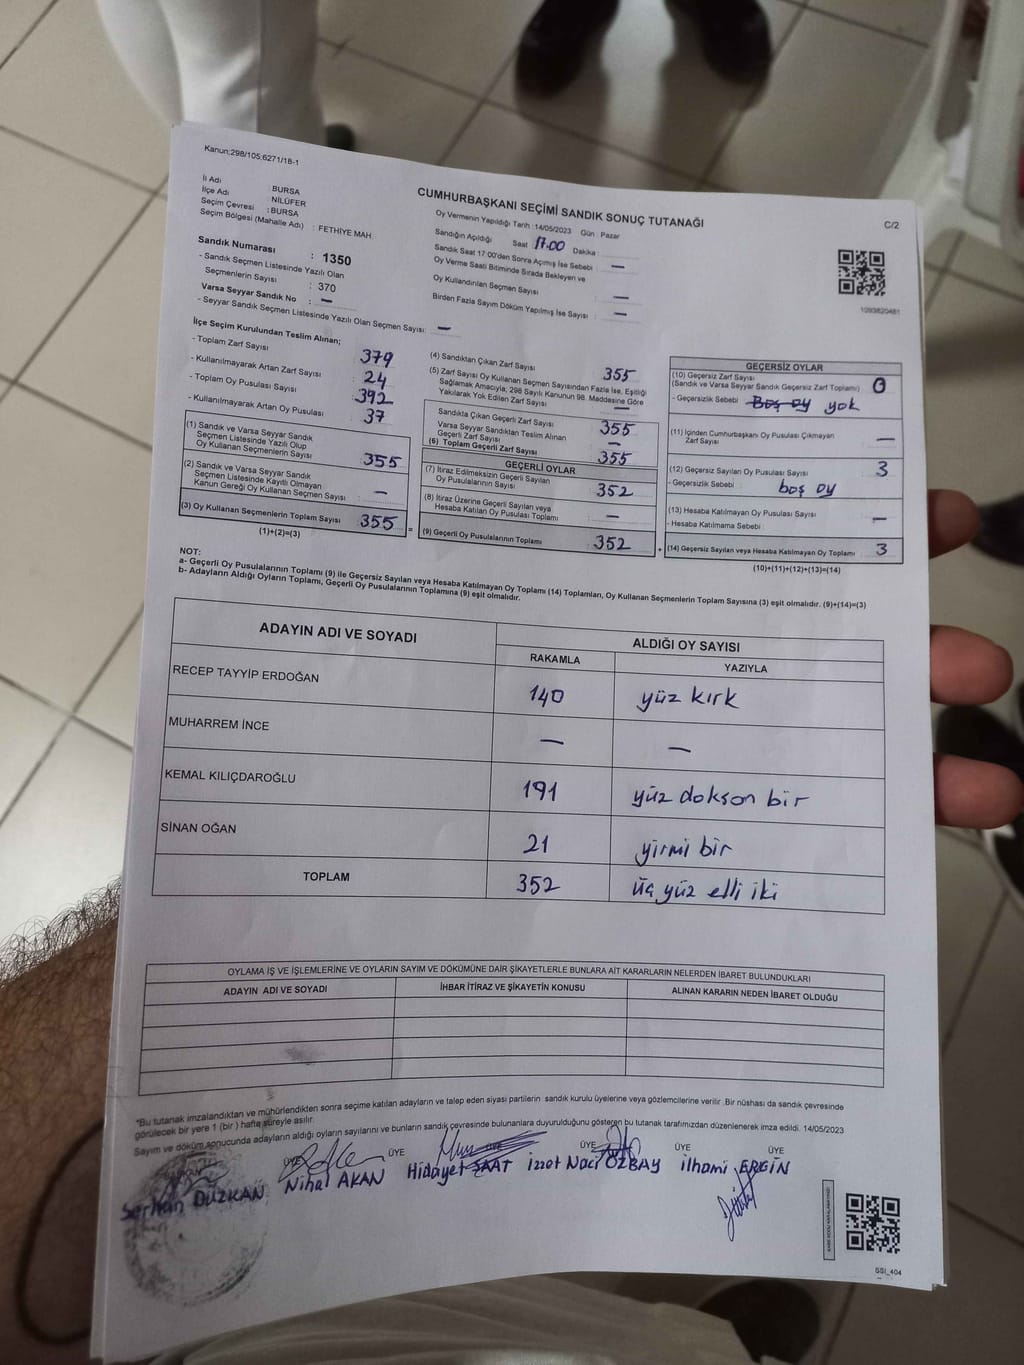 Kanun;298/105;6271/18-1
CUMHURBAŞKANI SEÇİMİ SANDIK SONUÇ TUTANAĞI
C/2
İl Adı : BURSA
İlçe Adı : NİLÜFER
Seçim Çevresi : BURSA
Seçim Bölgesi (Mahalle Adı) : FETHİYE MAH
Sandık Numarası : 1350
- Sandık Seçmen Listesinde Yazılı Olan
Seçmenlerin Sayısı : 370
Varsa Seyyar Sandık No : —
- Seyyar Sandık Seçmen Listesinde Yazılı Olan Seçmen Sayısı: —
Oy Vermenin Yapıldığı Tarih : 14/05/2023 Gün : Pazar
Sandığın Açıldığı Saat 17.00 Dakika :
Sandık Saat 17:00'den Sonra Açımış İse Sebebi : —
Oy Verme Saati Bitiminde Sırada Bekleyen ve
Oy Kullandırılan Seçmen Sayısı : —
Birden Fazla Sayım Döküm Yapılmış İse Sayısı : —
1093820481
İlçe Seçim Kurulundan Teslim Alınan;
- Toplam Zarf Sayısı 379
- Kullanılmayarak Artan Zarf Sayısı 24
- Toplam Oy Pusulası Sayısı 392
- Kullanılmayarak Artan Oy Pusulası 37
(1) Sandık ve Varsa Seyyar Sandık
Seçmen Listesinde Yazılı Olup
Oy Kullanan Seçmenlerin Sayısı 355
(2) Sandık ve Varsa Seyyar Sandık
Seçmen Listesinde Kayıtlı Olmayan
Kanun Gereği Oy Kullanan Seçmen Sayısı —
(3) Oy Kullanan Seçmenlerin Toplam Sayısı 355
(1)+(2)=(3)
(4) Sandıktan Çıkan Zarf Sayısı 355
(5) Zarf Sayısı Oy Kullanan Seçmen Sayısından Fazla İse, Eşitliği
Sağlamak Amacıyla; 298 Sayılı Kanunun 98. Maddesine Göre
Yakılarak Yok Edilen Zarf Sayısı —
Sandıkta Çıkan Geçerli Zarf Sayısı 355
Varsa Seyyar Sandıktan Teslim Alınan
Geçerli Zarf Sayısı —
(6) Toplam Geçerli Zarf Sayısı 355
GEÇERLİ OYLAR
(7) İtiraz Edilmeksizin Geçerli Sayılan
Oy Pusulalarının Sayısı 352
(8) İtiraz Üzerine Geçerli Sayılan veya
Hesaba Katılan Oy Pusulası Toplamı —
= (9) Geçerli Oy Pusulalarının Toplamı 352
GEÇERSİZ OYLAR
(10) Geçersiz Zarf Sayısı
(Sandık ve Varsa Seyyar Sandık Geçersiz Zarf Toplamı) 0
- Geçersizlik Sebebi : Boş oy yok
(11) İçinden Cumhurbaşkanı Oy Pusulası Çıkmayan
Zarf Sayısı —
(12) Geçersiz Sayılan Oy Pusulası Sayısı 3
- Geçersizlik Sebebi : boş oy
(13) Hesaba Katılmayan Oy Pusulası Sayısı —
- Hesaba Katılmama Sebebi :
+ (14) Geçersiz Sayılan veya Hesaba Katılmayan Oy Toplamı 3
(10)+(11)+(12)+(13)=(14)
NOT:
a- Geçerli Oy Pusulalarının Toplamı (9) ile Geçersiz Sayılan veya Hesaba Katılmayan Oy Toplamı (14) Toplamları, Oy Kullanan Seçmenlerin Toplam Sayısına (3) eşit olmalıdır. (9)+(14)=(3)
b- Adayların Aldığı Oyların Toplamı, Geçerli Oy Pusulalarının Toplamına (9) eşit olmalıdır.
ADAYIN ADI VE SOYADI
ALDIĞI OY SAYISI
RAKAMLA YAZIYLA
RECEP TAYYİP ERDOĞAN 140 yüz kırk
MUHARREM İNCE — —
KEMAL KILIÇDAROĞLU 191 yüz dokson bir
SİNAN OĞAN 21 yirmi bir
TOPLAM 352 üç yüz elli iki
OYLAMA İŞ VE İŞLEMLERİNE VE OYLARIN SAYIM VE DÖKÜMÜNE DAİR ŞİKAYETLERLE BUNLARA AİT KARARLARIN NELERDEN İBARET BULUNDUKLARI
ADAYIN ADI VE SOYADI İHBAR İTİRAZ VE ŞİKAYETİN KONUSU ALINAN KARARIN NEDEN İBARET OLDUĞU
*Bu tutanak imzalandıktan ve mühürlendikten sonra seçime katılan adayların ve talep eden siyasi partilerin sandık kurulu üyelerine veya gözlemcilerine verilir .Bir nüshası da sandık çevresinde
görülecek bir yere 1 (bir ) hafta süreyle asılır.
Sayım ve döküm sonucunda adayların aldığı oyların sayılarını ve bunların sandık çevresinde bulunanlara duyurulduğunu gösteren bu tutanak tarafımızdan düzenlenerek imza edildi. 14/05/2023
ÜYE ÜYE ÜYE ÜYE ÜYE ÜYE
Serkan DÜZKAN Nihal AKAN Hidayet SAAT izzet Naci ÖZBAY ilhami ERGİN
SSI_404